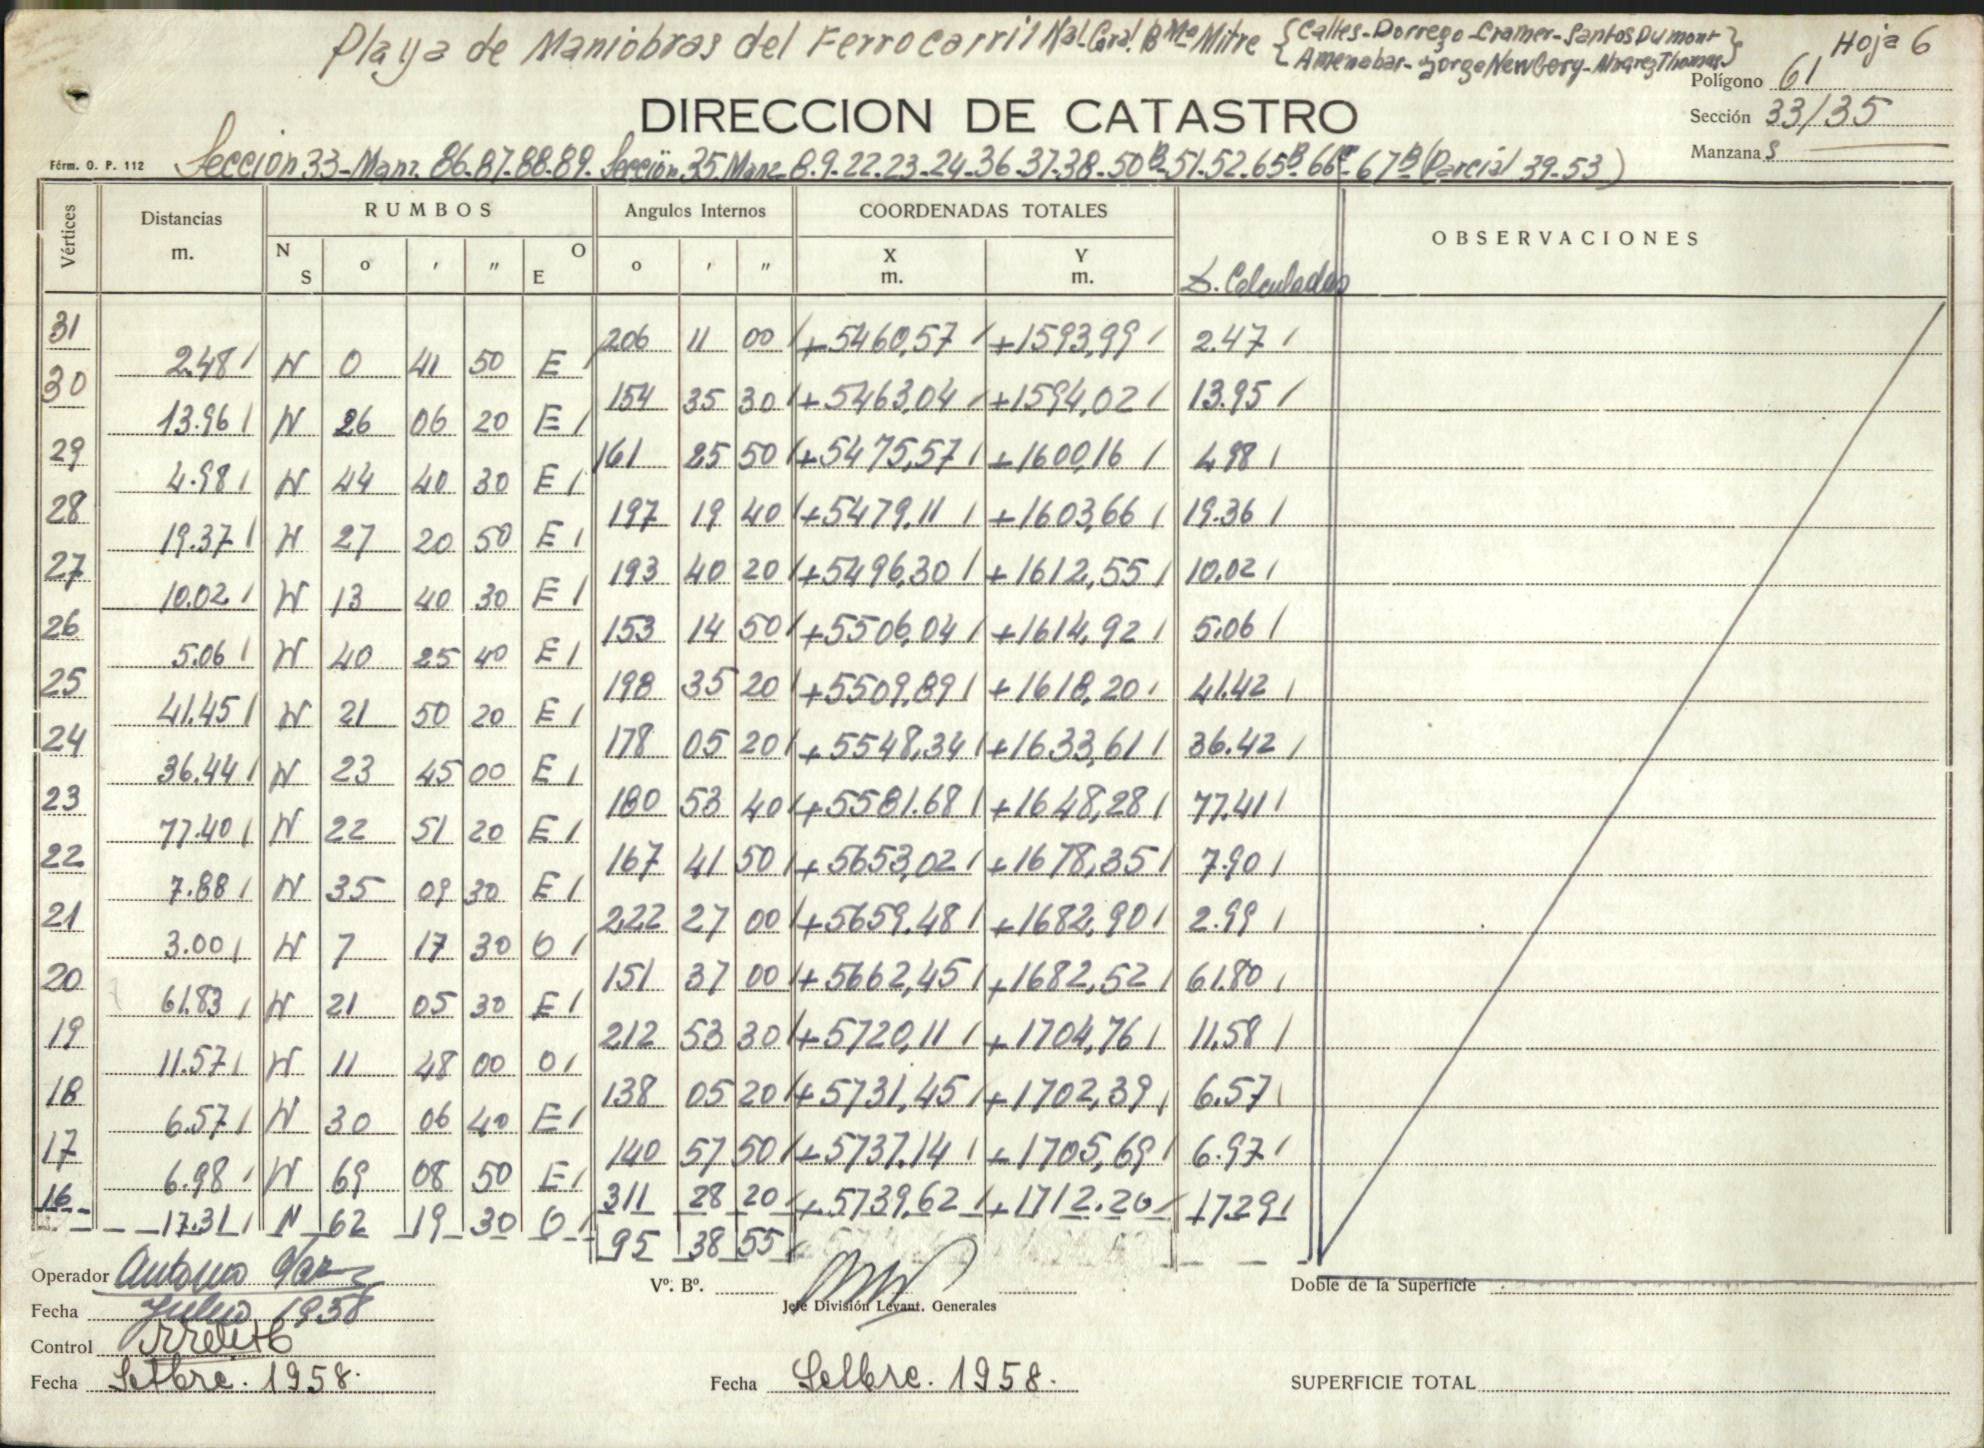 Playa de Maniobras del Ferrocarril Nal. Gral. B Me Mitre { Calles-Dorrego-Cramer-Santos Dumont } Hoja 6
Amenabar- Jorge Newbery- Alvarez Thomas
Polígono 61
DIRECCION DE CATASTRO
Sección 33/35
Manzana s
Fórm. O. P. 112 Sección 33-Manz. 86.87.88.89. Sección 35 Manz. 8.9.22.23-24-36-37-38-50B-51-52.65B-66 67B (Parcial 39-53)
Vértices Distancias m. RUMBOS Angulos Internos COORDENADAS TOTALES OBSERVACIONES
N S o ' " O E o ' " X m. Y m. D. Calculadas
31 206 11 00 +5460,57 +1593,99 2.47
2.48 N 0 41 50 E
30 154 35 30 +5463,04 +1594,02 13.95
13.96 N 26 06 20 E
29 161 25 50 +5475,57 +1600,16 4.98
4.98 N 44 40 30 E
28 197 19 40 +5479,11 +1603,66 19.36
19.37 N 27 20 50 E
27 193 40 20 +5496,30 +1612,55 10.02
10.02 N 13 40 30 E
26 153 14 50 +5506,04 +1614,92 5.06
5.06 N 40 25 40 E
25 198 35 20 +5509,89 +1618,20 41.42
41.45 N 21 50 20 E
24 178 05 20 +5548,34 +1633,61 36.42
36.44 N 23 45 00 E
23 180 53 40 +5581.68 +1648,28 77.41
77.40 N 22 51 20 E
22 167 41 50 +5653,02 +1678,35 7.90
7.88 N 35 09 30 E
21 222 27 00 +5659.48 +1682,90 2.99
3.00 N 7 17 30 O
20 151 37 00 +5662,45 +1682,52 61.80
61.83 N 21 05 30 E
19 212 53 30 +5720,11 +1704,76 11.58
11.57 N 11 48 00 O
18 138 05 20 +5731,45 +1702,39 6.57
6.57 N 30 06 40 E
17 140 57 50 +5737.14 +1705,69 6.97
6.98 N 69 08 50 E
16 311 28 20 +5739,62 +1712.20 17.29
17.31 N 62 19 30 O
95 38 55
Operador Antonio
Vº. Bº.
Doble de la Superficie
Fecha Julio 1958
Jefe División Levant. Generales
Control
Fecha Setbre. 1958.
Fecha Setbre. 1958.
SUPERFICIE TOTAL